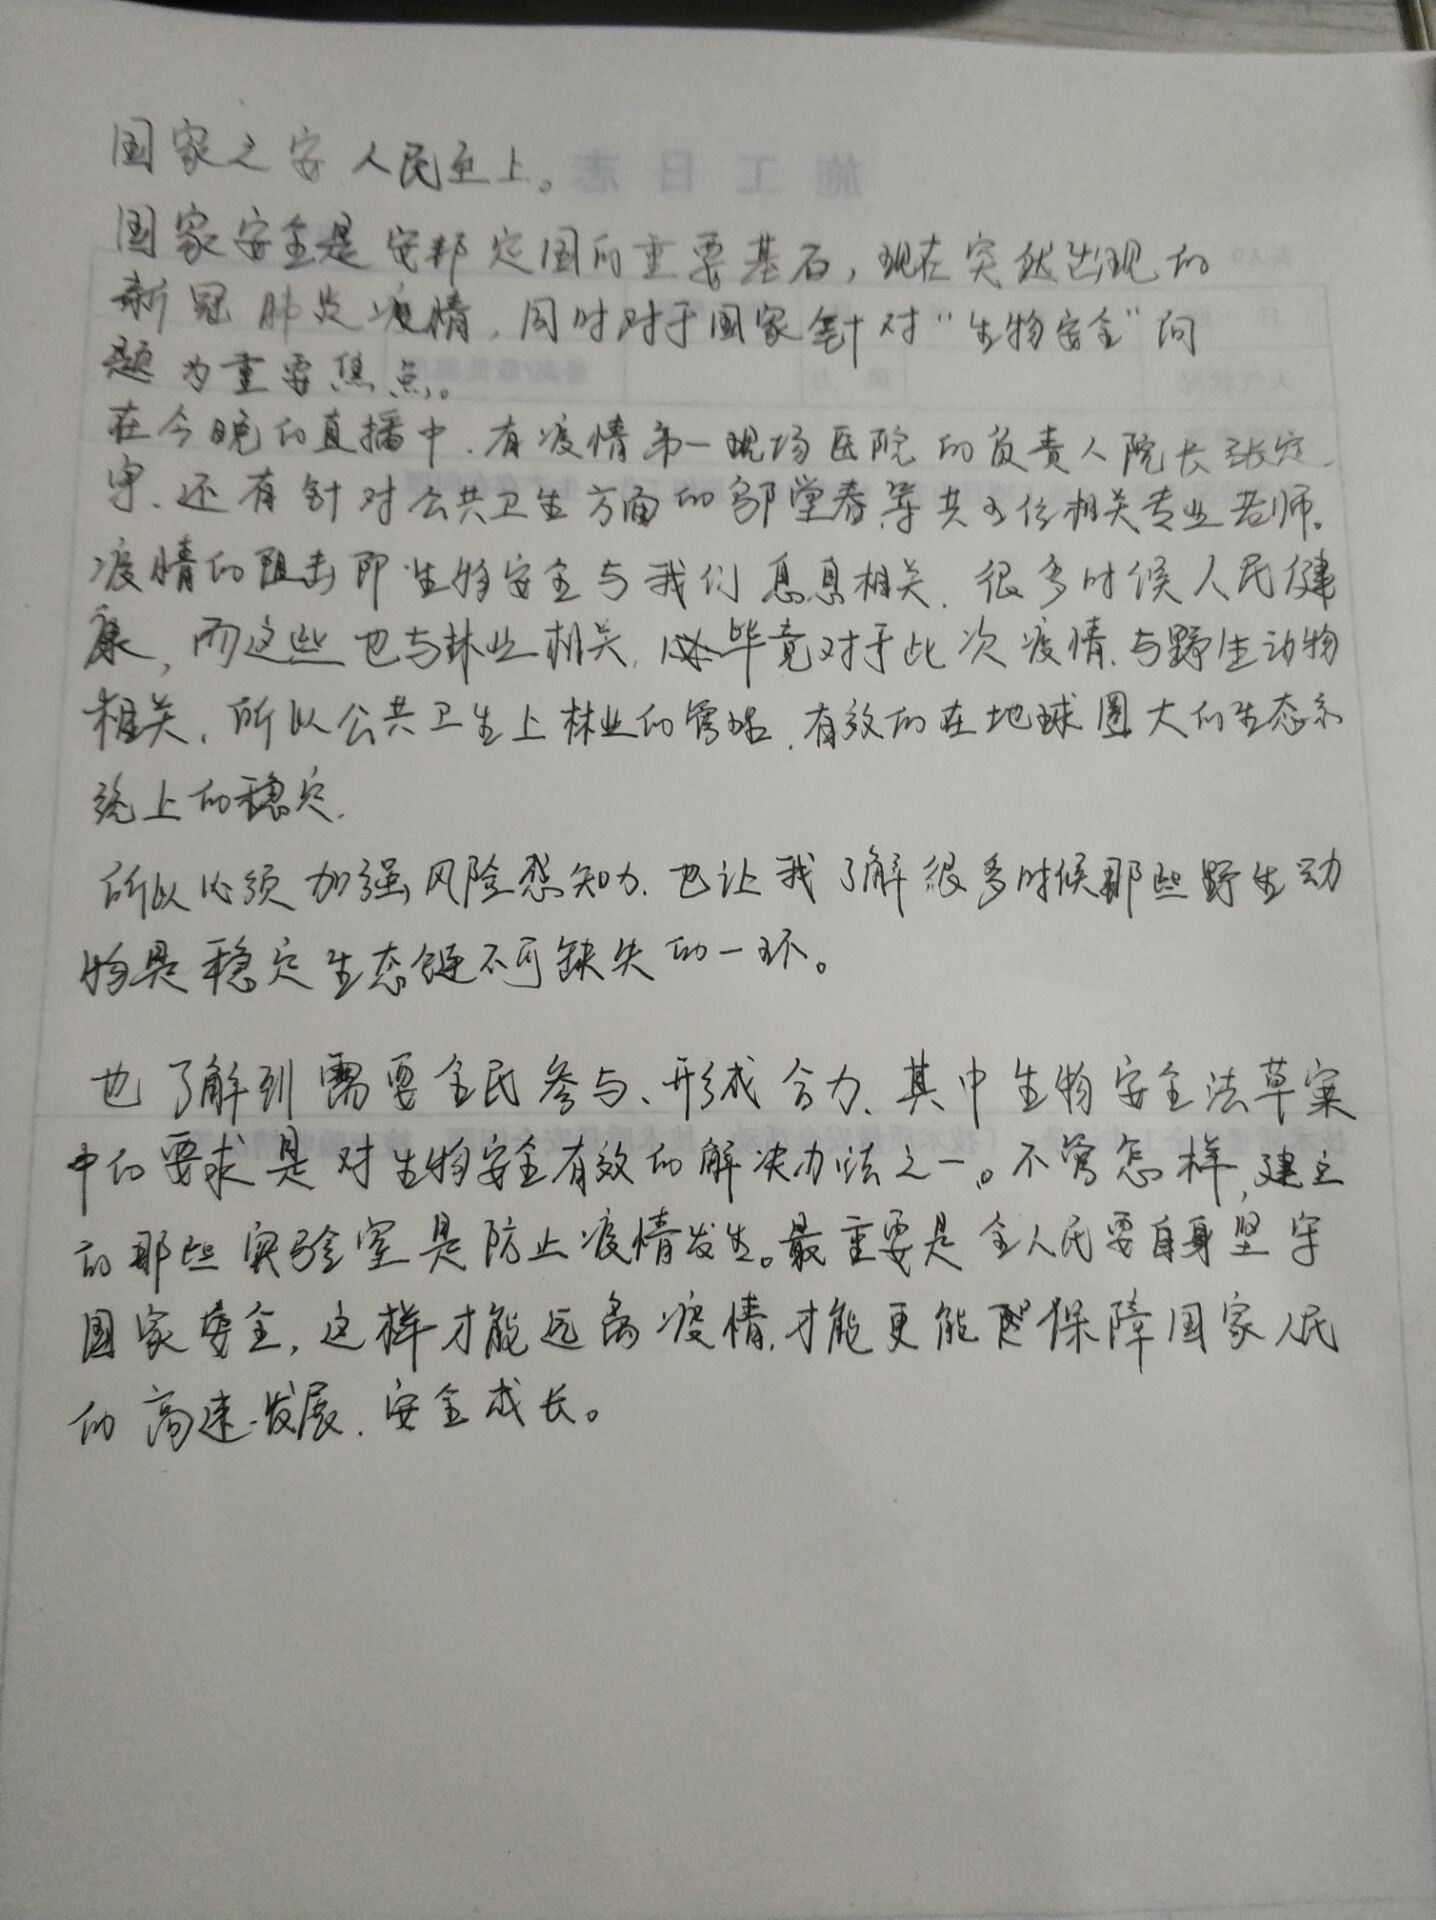 国家之安 人民至上。
国家安全是安邦定国的重要基石，现在突然出现的
新冠肺炎疫情，同时对于国家针对“生物安全”问
题为重要焦点。
在今晚的直播中、有疫情第一现场医院的负责人院长张定
宇、还有针对公共卫生方面的邹堂春等共 位相关专业老师。
疫情的阻击即生物安全与我们息息相关、很多时候人民健
康，而这些也与林业相关、毕竟对于此次疫情、与野生动物
相关、所以公共卫生上林业的管 、有效的在地球圈大的生态系
统上的稳定、
所以必须加强风险感知力、也让我了解很多时候那些野生动
物是稳定生态链不可缺失的一环。
也了解到需要全民参与、形成合力、其中生物安全法草案
中的要求是对生物安全有效的解决办法之一。不管怎样，建立
的那些实验室是防止疫情发生。最重要是全人民要自身坚守
国家安全，这样才能远离疫情、才能更能保障国家人民
的高速发展、安全成长。
施工日志